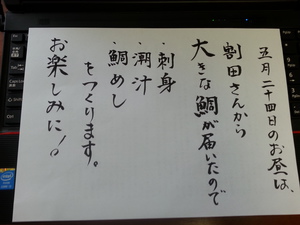 五月二十四日のお昼は、
割田さんから
大きな鯛が届いたので
・刺身
・潮汁
・鯛めし
をつくります。
お楽しみに！